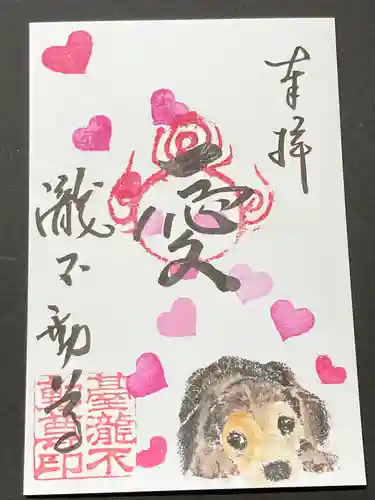 奉拝
愛
瀧不動尊
墓瀧不
動尊印